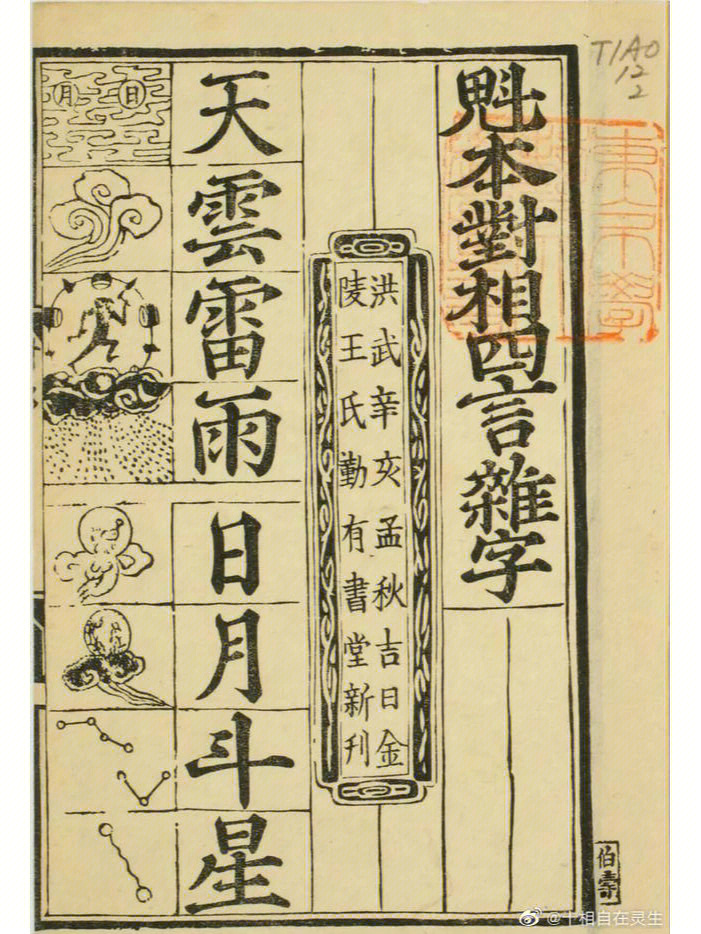 TIAO
12
2
魁本對相四言雜字
洪武辛亥孟秋吉日金
陵王氏勤有書堂新刊
天雲雷雨
日月斗星
日
月
伯壽
@十相自在灵生